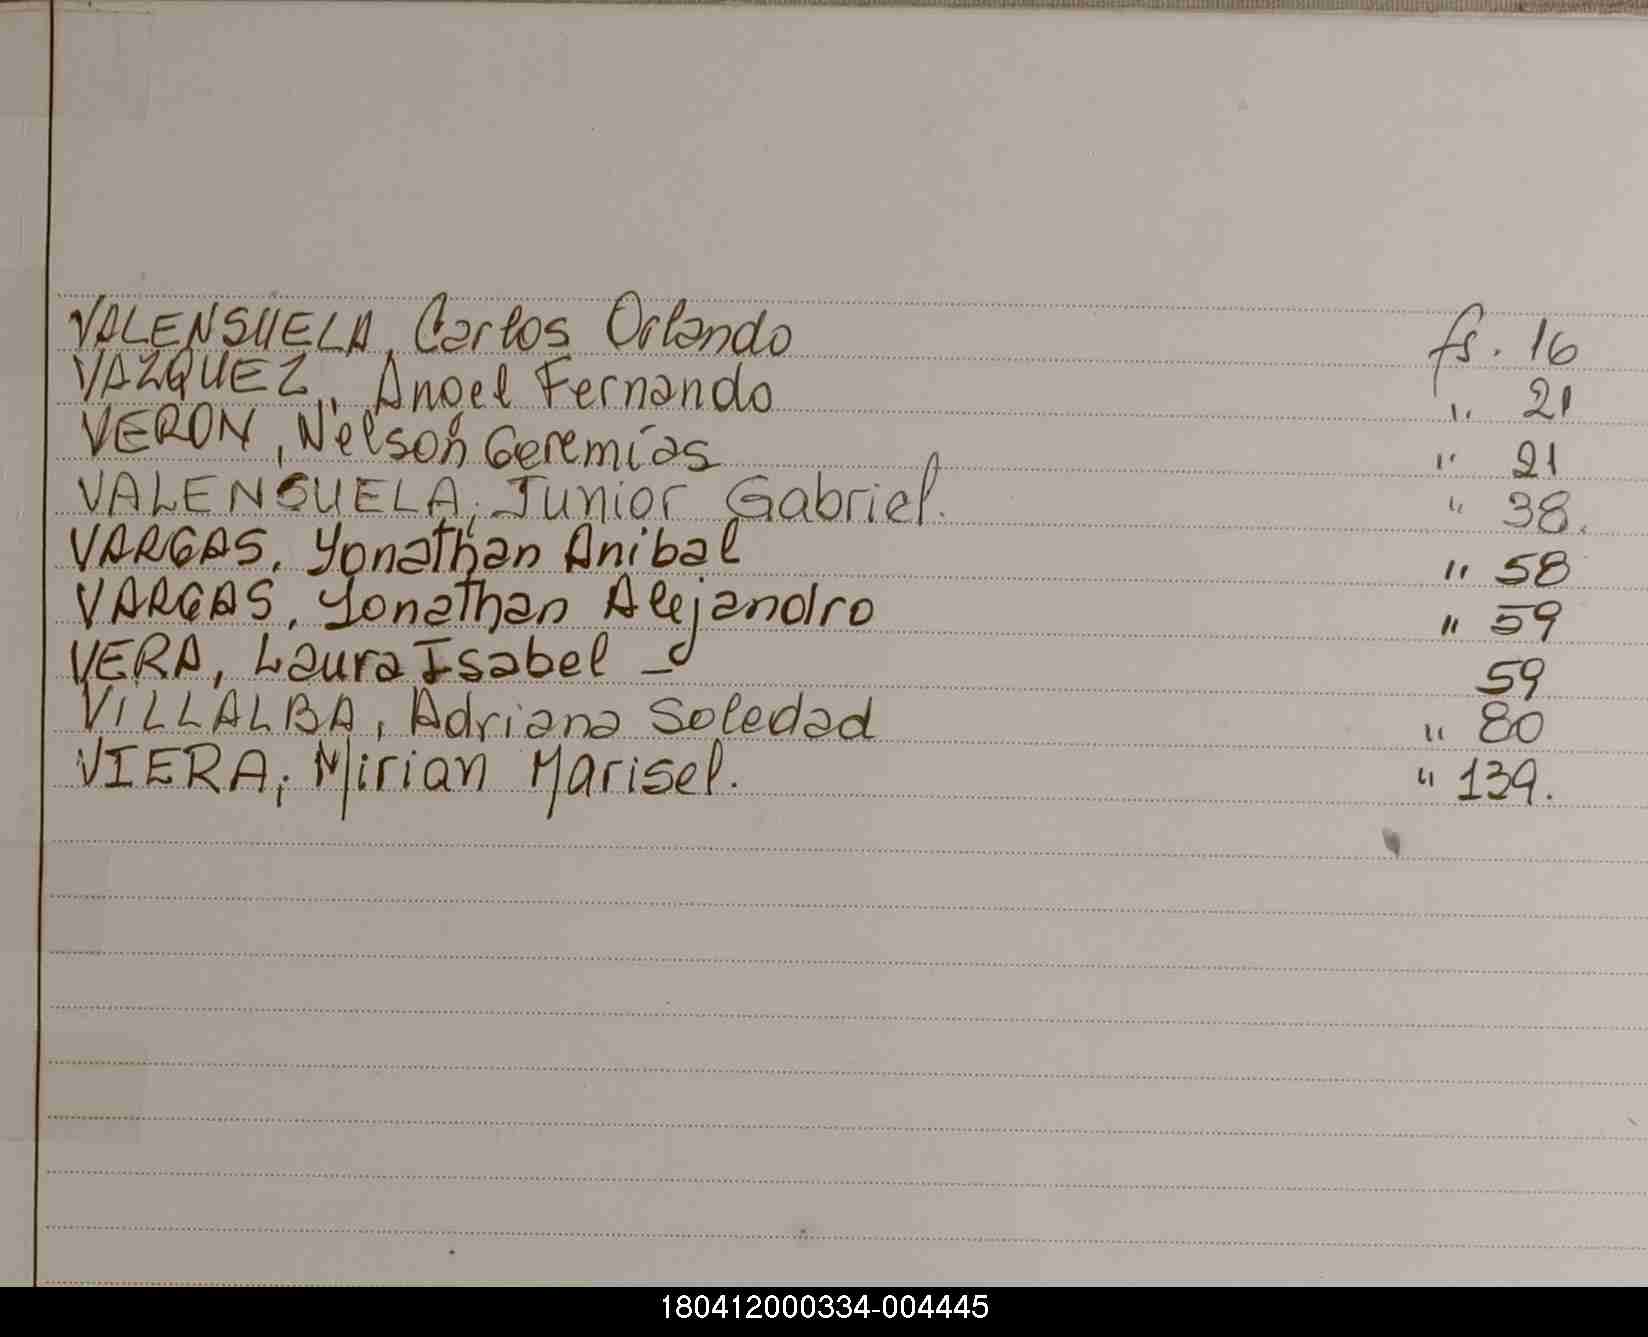 VALENSUELA, Carlos Orlando fs. 16
VAZQUEZ, Angel Fernando " 21
VERON, Nelson Geremías " 21
VALENSUELA, Junior Gabriel. " 38.
VARGAS, Yonathan Anibal " 58
VARGAS, Yonathan Alejandro " 59
VERA, Laura Isabel - 59
VILLALBA, Adriana Soledad " 80
VIERA, Mirian Marisel. " 139.
180412000334-004445